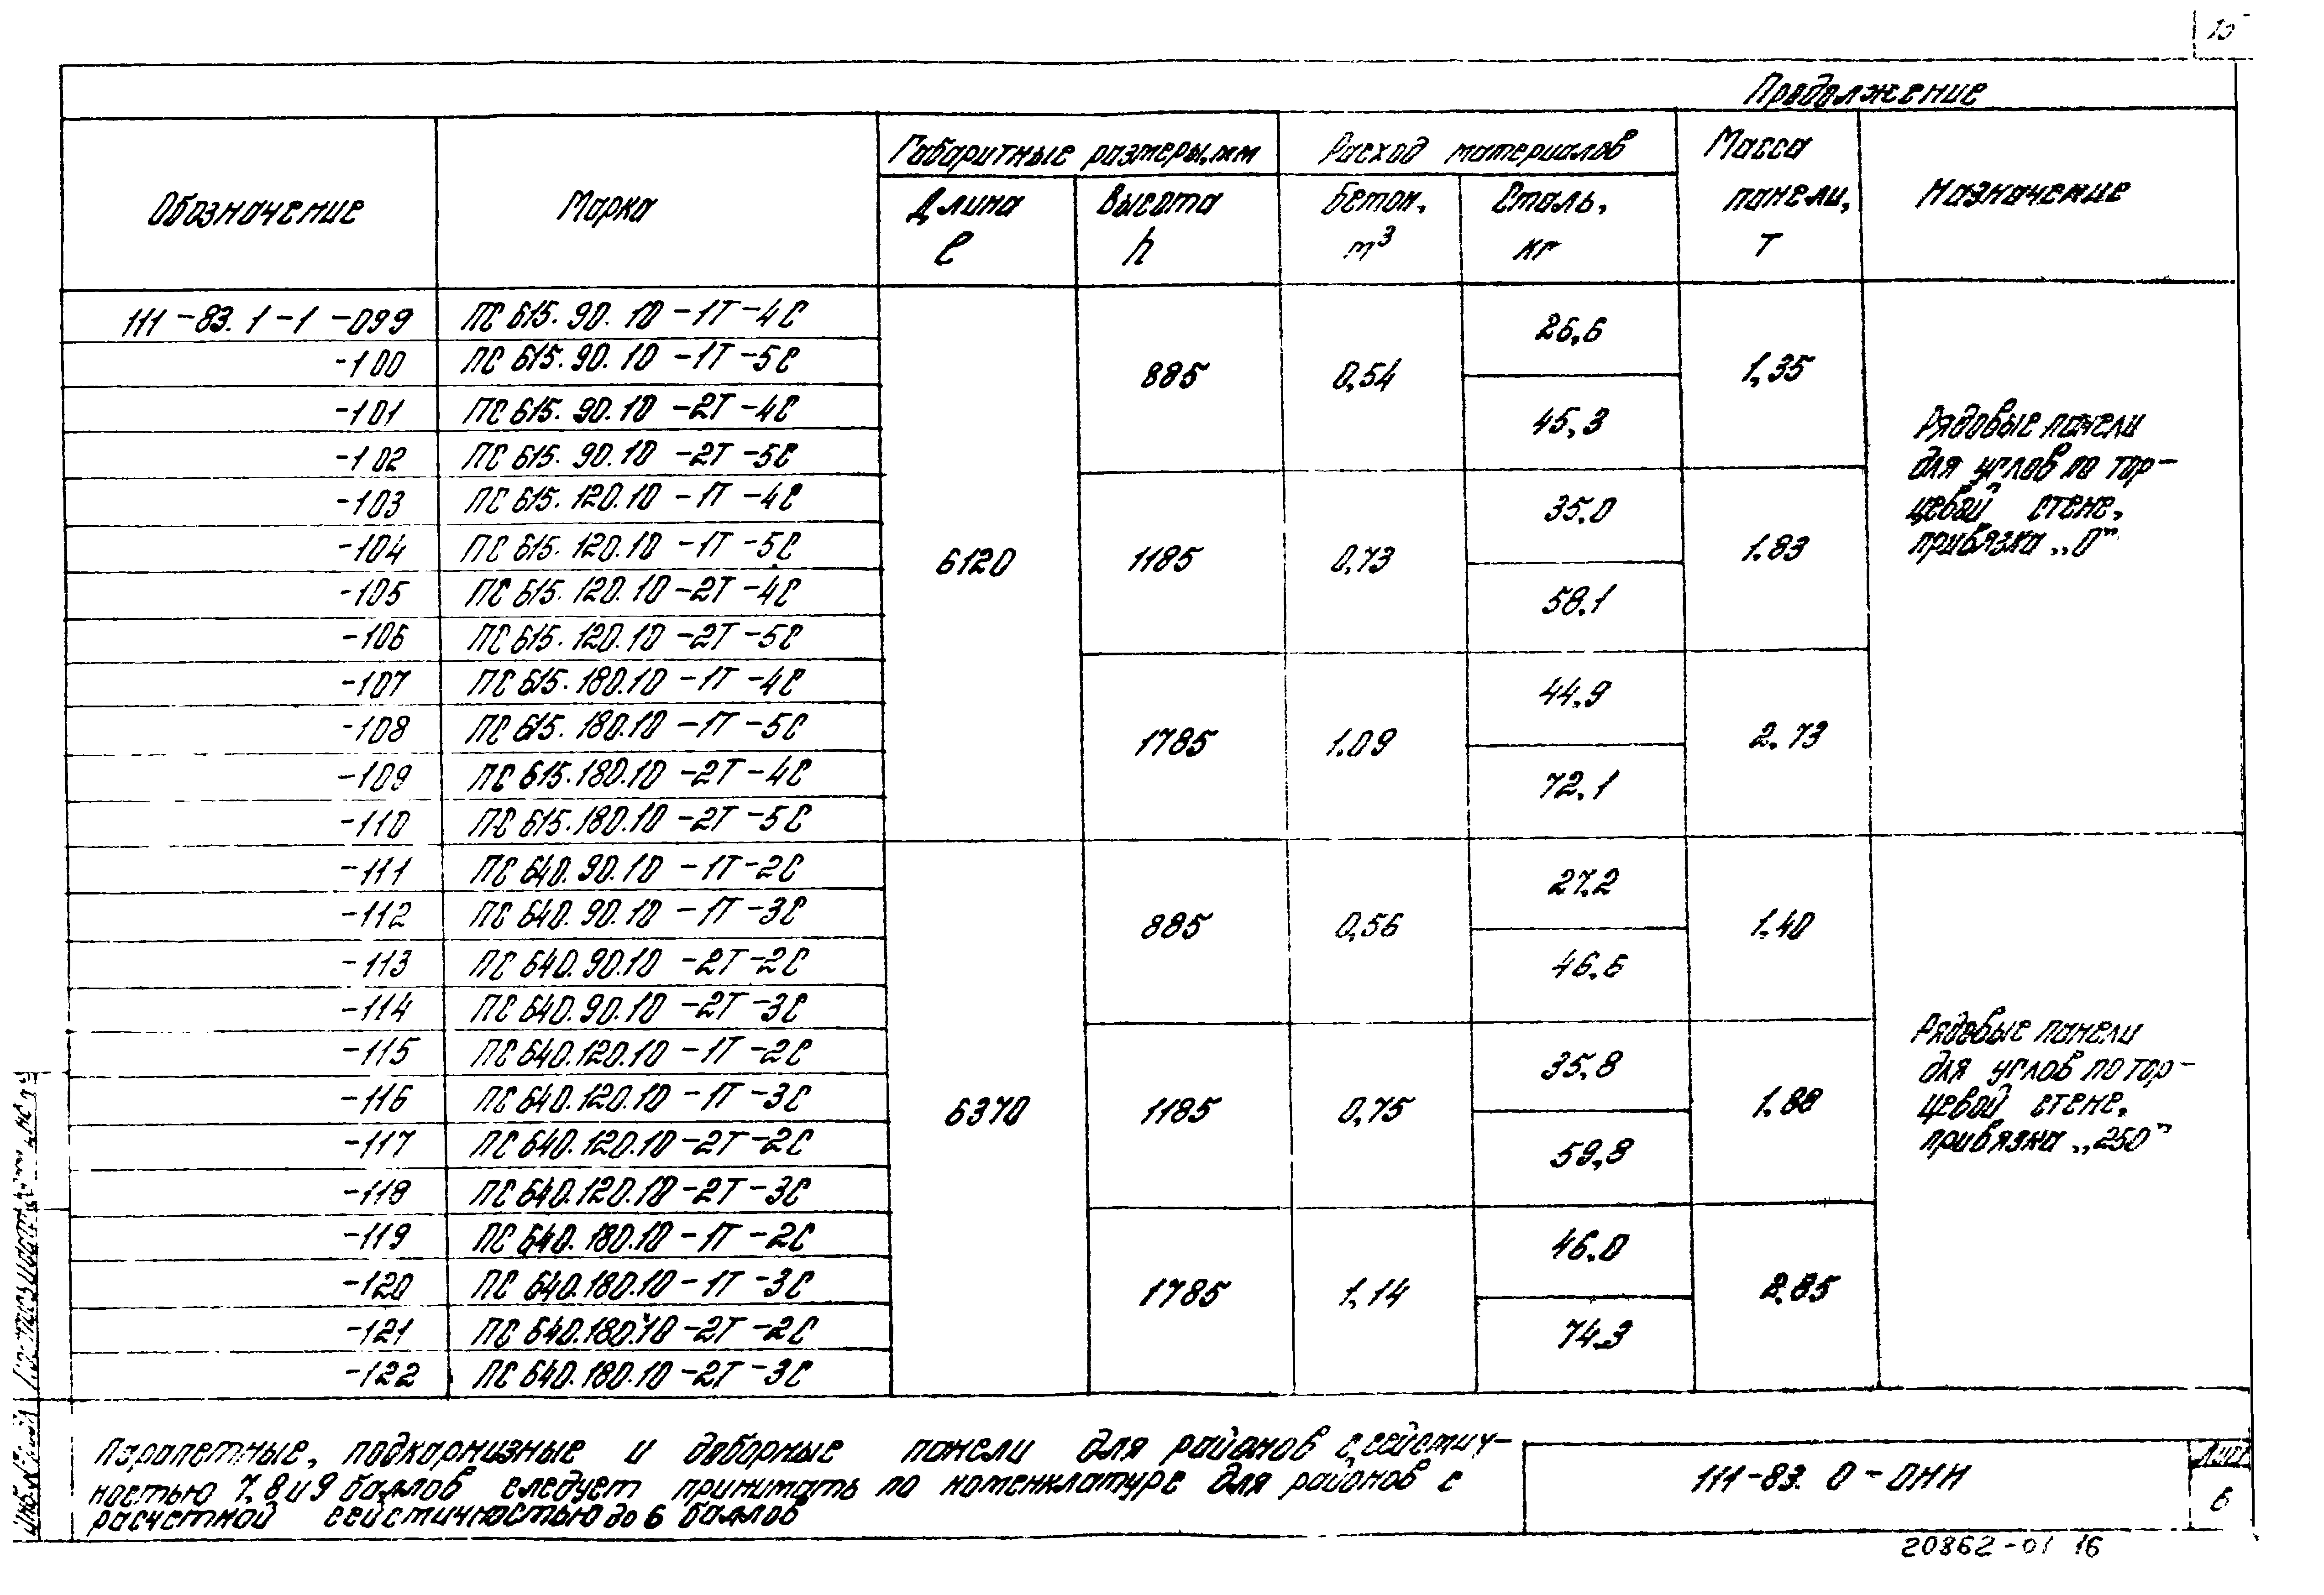 Продолжение
Обозначение Марка Габаритные размеры, мм Расход материалов Масса панели, т Назначение
Длина ℓ Высота h Бетон, m³ Сталь, кг
111-83.1-1-099 ПС 615.90.10-1Т-4С 6120 885 0,54 26,6 1,35
-100 ПС 615.90.10-1Т-5С
-101 ПС 615.90.10-2Т-4С 45,3
-102 ПС 615.90.10-2Т-5С
-103 ПС 615.120.10-1Т-4С 1185 0,73 35,0 1.83
-104 ПС 615.120.10-1Т-5С
-105 ПС 615.120.10-2Т-4С 58,1
-106 ПС 615.120.10-2Т-5С
-107 ПС 615.180.10-1Т-4С 1785 1.09 44,9 2.73
-108 ПС 615.180.10-1Т-5С
-109 ПС 615.180.10-2Т-4С 72,1
-110 ПС 615.180.10-2Т-5С
Рядовые панели
для углов по тор-
цевой стене,
привязка „0"
-111 ПС 640.90.10-1Т-2С 6370 885 0,56 27,2 1.40
-112 ПС 640.90.10-1Т-3С
-113 ПС 640.90.10-2Т-2С 46,6
-114 ПС 640.90.10-2Т-3С
-115 ПС 640.120.10-1Т-2С 1185 0,75 35,8 1.88
-116 ПС 640.120.10-1Т-3С
-117 ПС 640.120.10-2Т-2С 59,8
-118 ПС 640.120.10-2Т-3С
-119 ПС 640.180.10-1Т-2С 1785 1,14 46,0 2.85
-120 ПС 640.180.10-1Т-3С
-121 ПС 640.180.10-2Т-2С 74,3
-122 ПС 640.180.10-2Т-3С
Рядовые панели
для углов по тор-
цевой стене,
привязка „250"
Парапетные, подкарнизные и доборные панели для районов с сейсмич-
ностью 7, 8 и 9 баллов следует принимать по номенклатуре для районов с
расчетной сейсмичностью до 6 баллов
111-83. 0-0НИ
Лист
6
20862-01 16